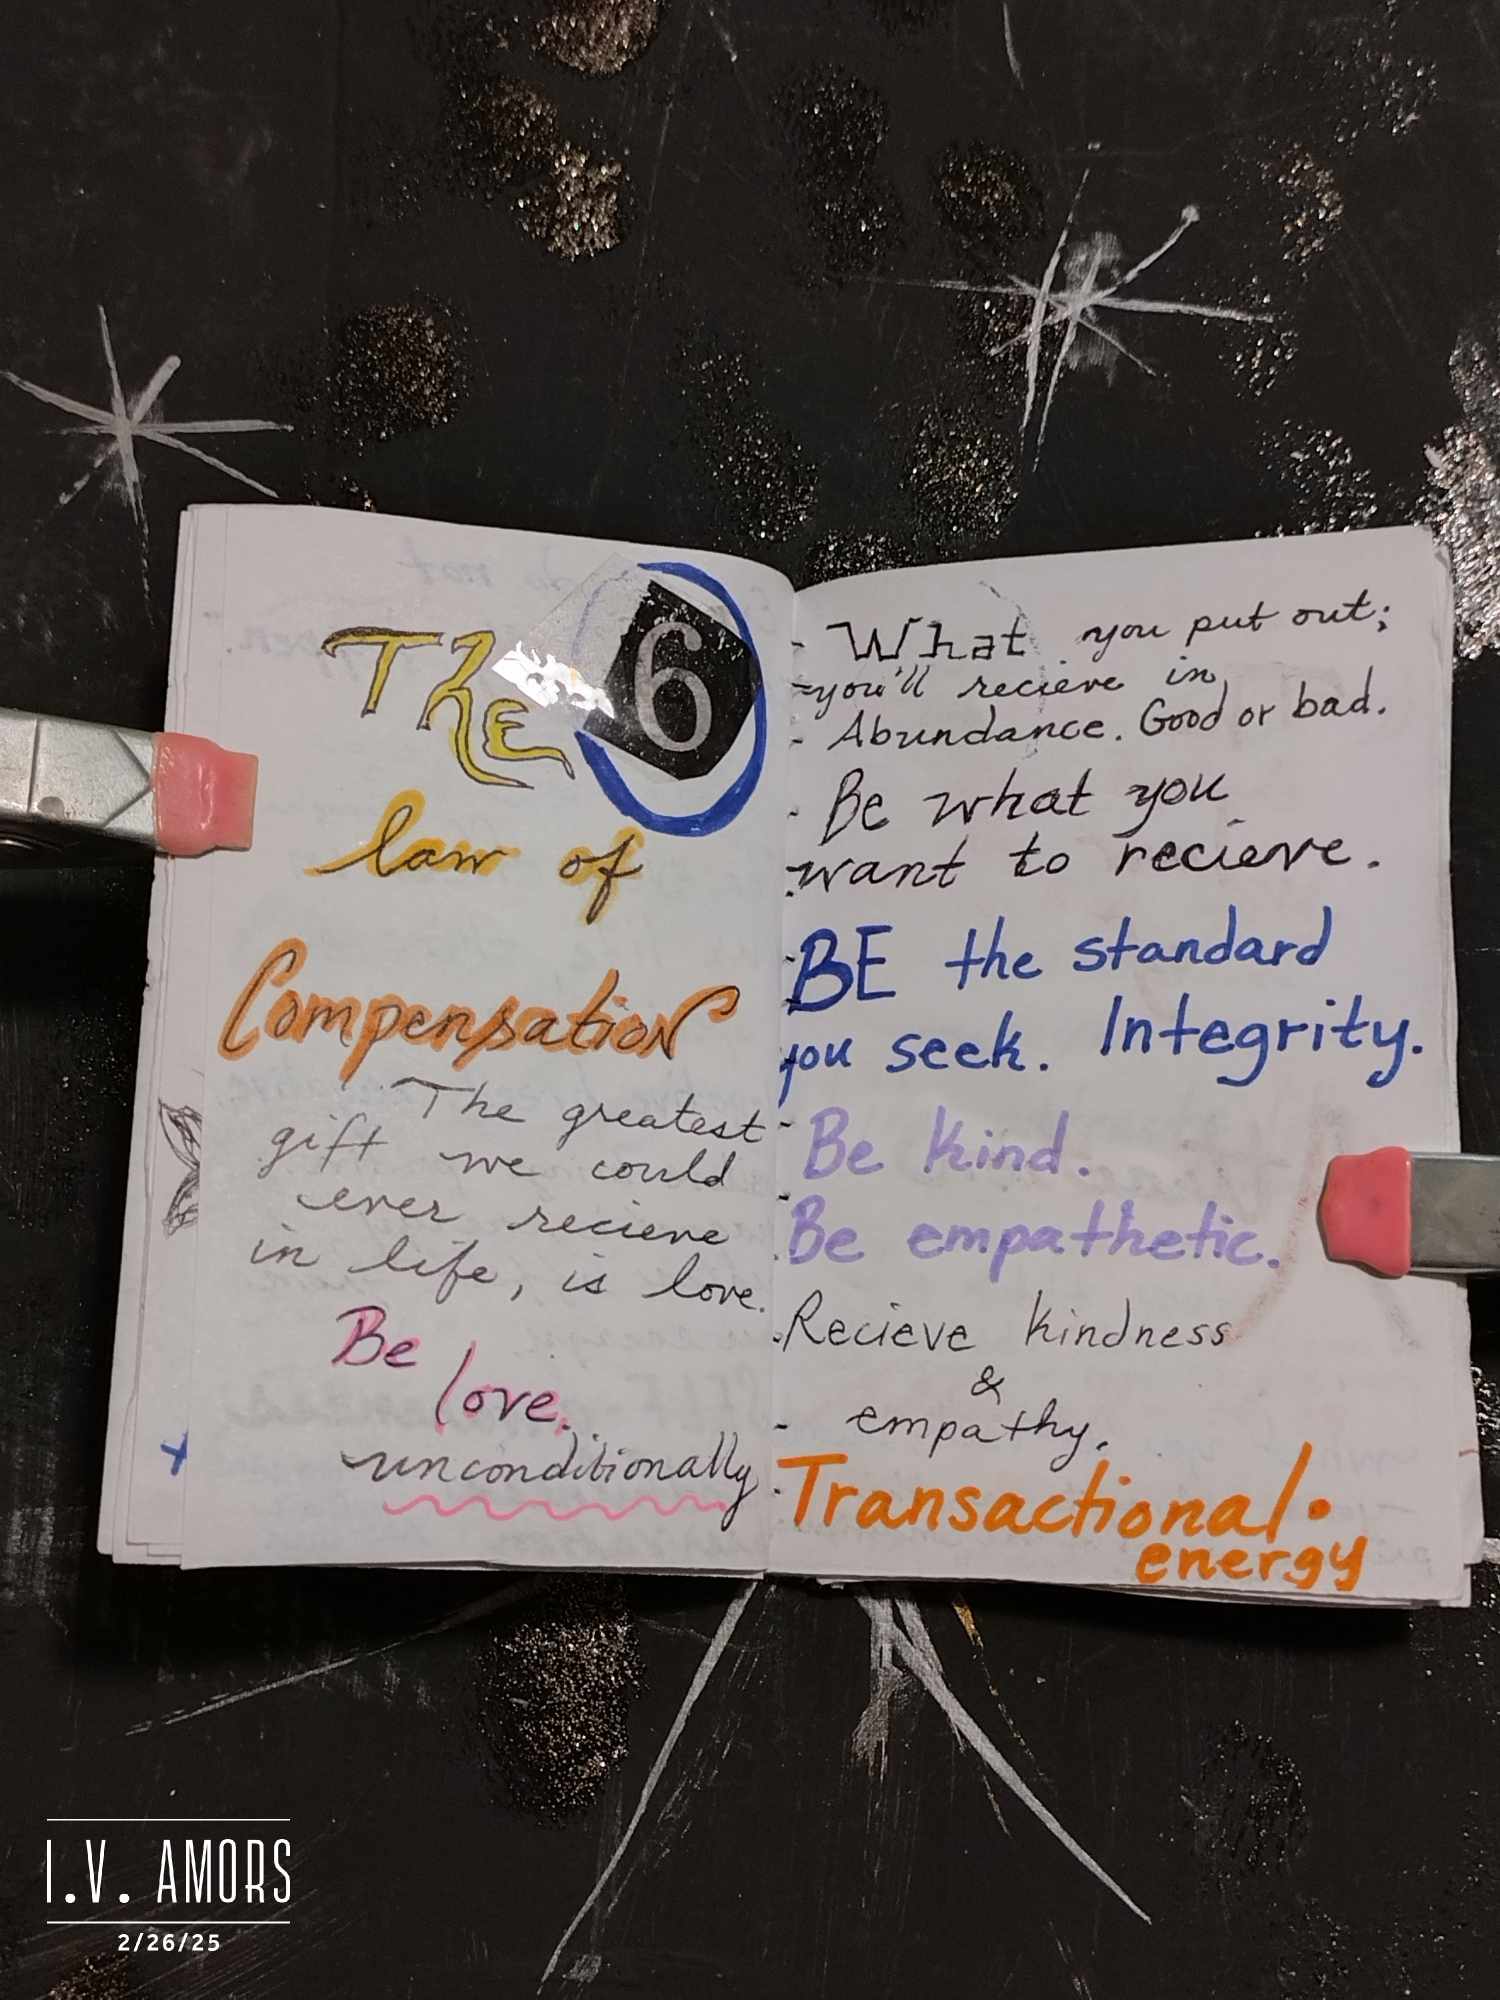 The
6
law of
Compensation
The greatest
gift we could
ever recieve
in life, is love.
Be
love.
unconditionally
- What you put out;
you'll recieve in
- Abundance. Good or bad.
- Be what you
want to recieve.
BE the standard
you seek. Integrity.
- Be kind.
Be empathetic.
Recieve kindness
&
- empathy.
Transactional.
energy
I.V. AMORS
2/26/25